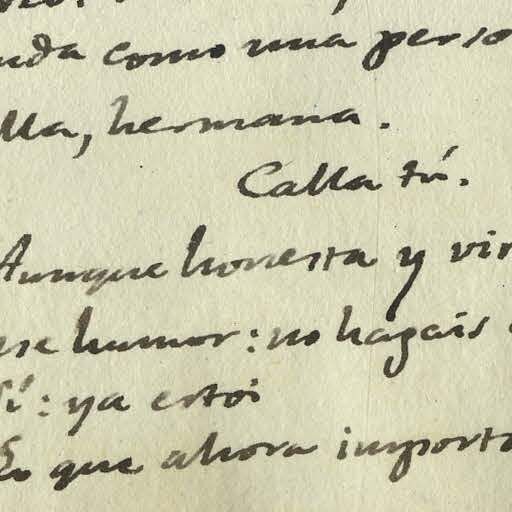 como una perso
lla, hermana.
Calla tú.
Aunque honesta y vir
ese humor: no hagáis
Sí: ya estoi
Lo que ahora importa